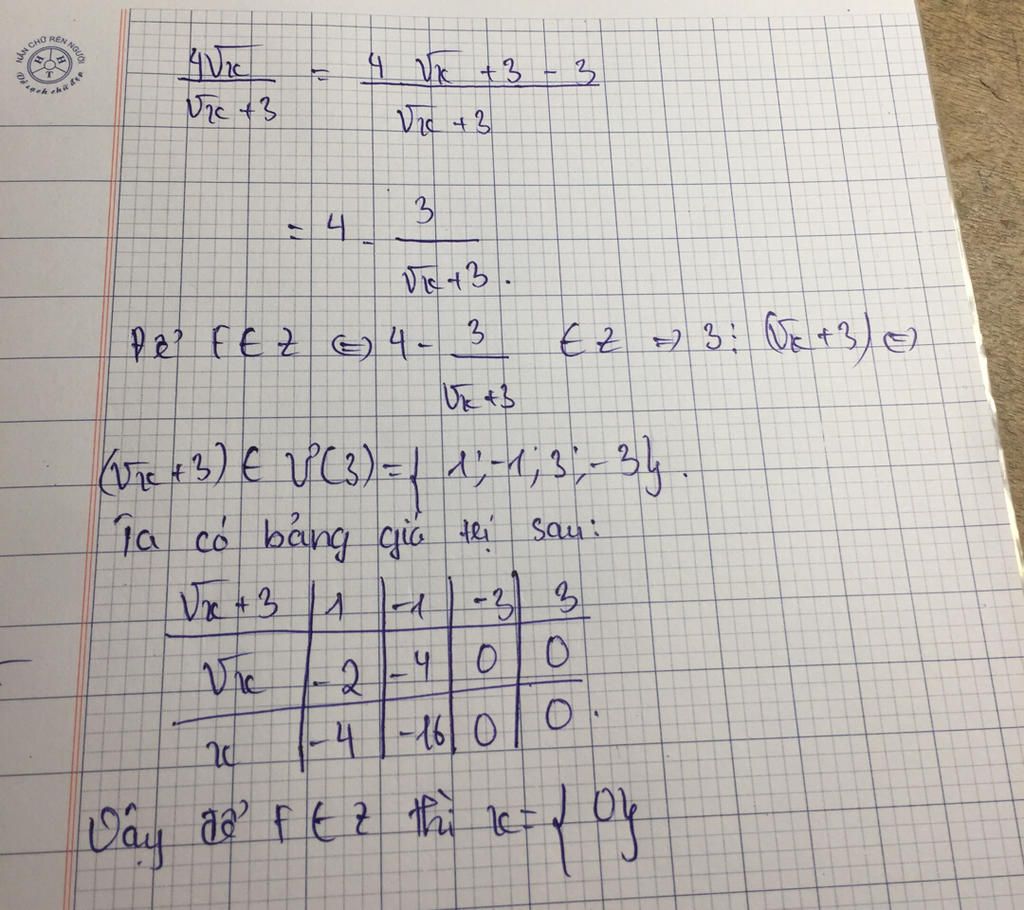 NẮN CHỮ RÈN NGƯỜI
HHT
4√x / (√x + 3) = (4 √x + 3 - 3) / (√x + 3)
= 4 - 3 / (√x + 3).
Để F ∈ Z ⇔ 4 - 3 / (√x + 3) ∈ Z ⇒ 3 ⋮ (√x + 3) ⇔
(√x + 3) ∈ Ư(3) = { 1; -1; 3; -3}.
Ta có bảng giá trị sau:
√x + 3 | 1 | -1 | -3 | 3
√x | -2 | -4 | 0 | 0
x | -4 | -16 | 0 | 0.
Vậy để F ∈ Z thì x = { 0}